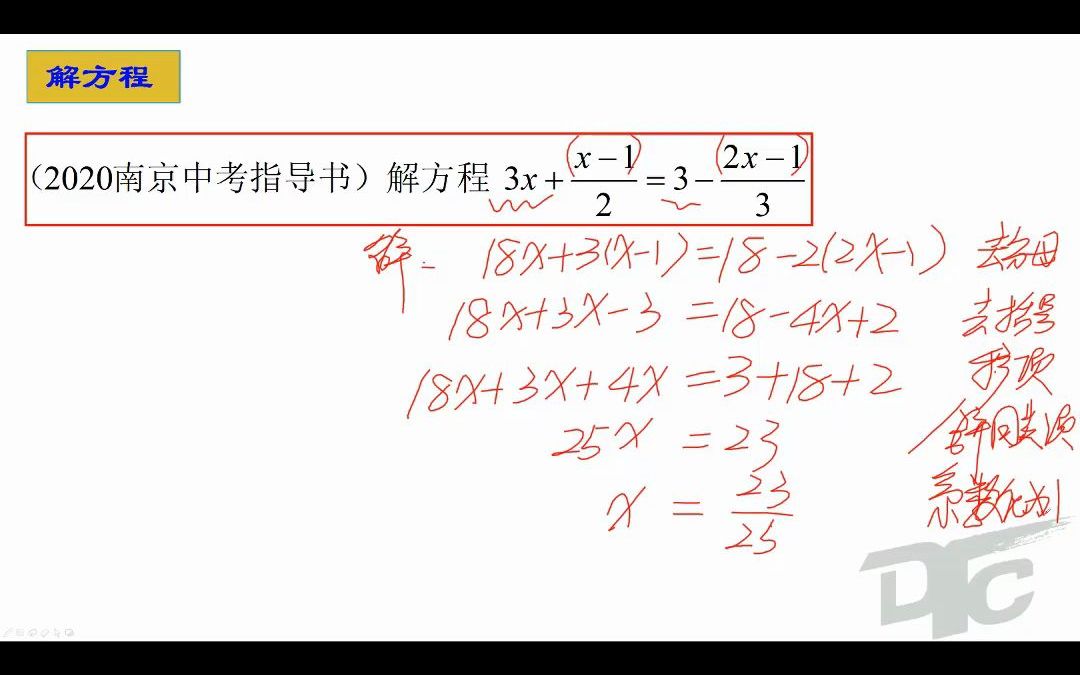 解方程
（2020南京中考指导书）解方程 3x + (x−1)/2 = 3 − (2x−1)/3
解: 18x+3(x-1)=18-2(2x-1) 去分母
18x+3x-3=18-4x+2 去括号
18x+3x+4x=3+18+2 移项
25x=23 合并同类项
x=23/25 系数化为1
DTC